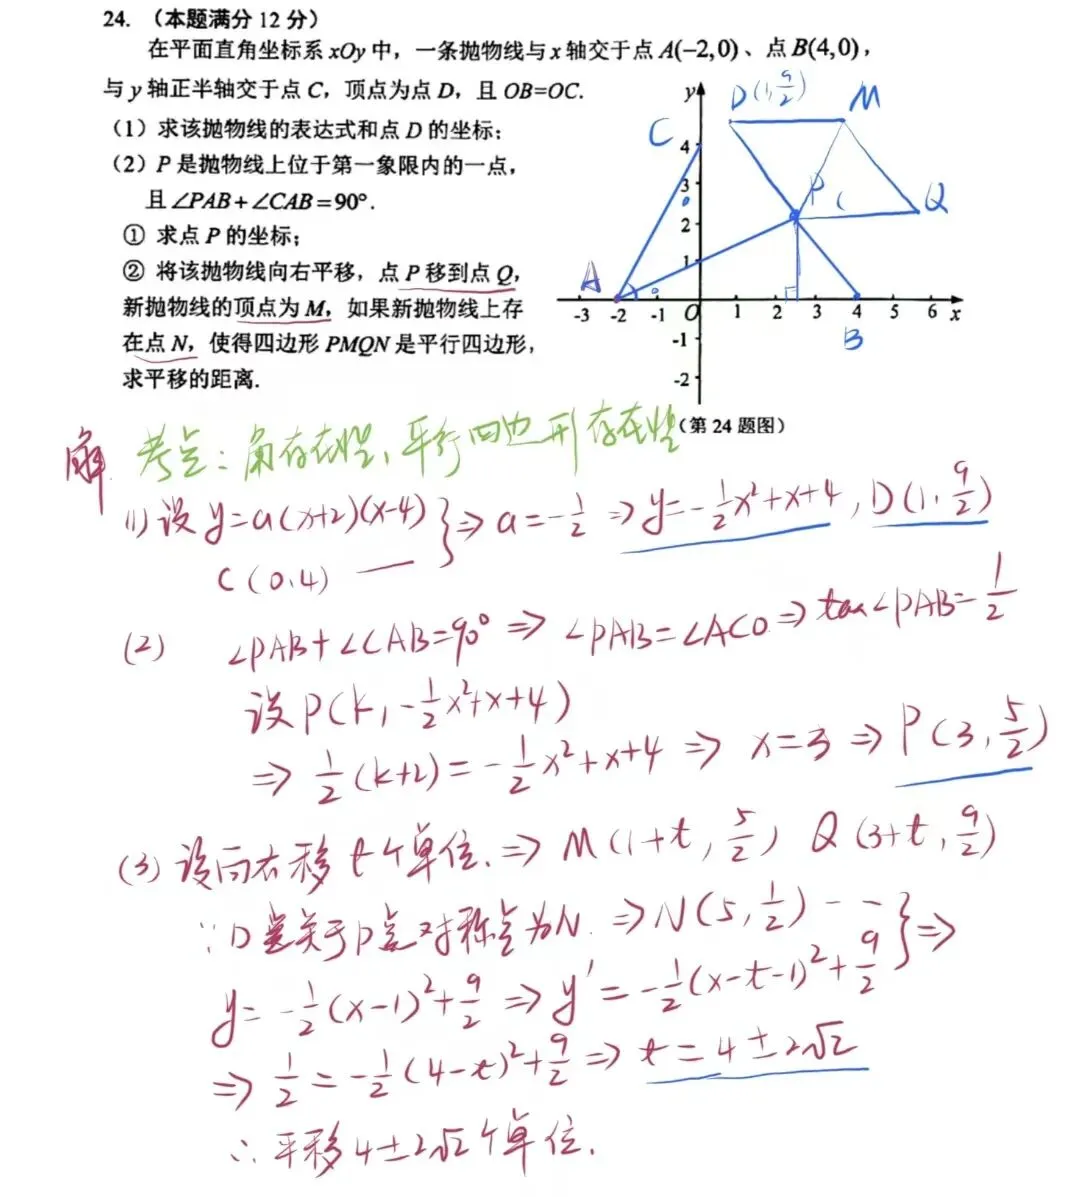 24. （本题满分 12 分）
在平面直角坐标系 xOy 中，一条抛物线与 x 轴交于点 A(−2,0)、点 B(4,0)，
与 y 轴正半轴交于点 C，顶点为点 D，且 OB=OC.
（1）求该抛物线的表达式和点 D 的坐标；
（2）P 是抛物线上位于第一象限内的一点，
且 ∠PAB+∠CAB=90°.
① 求点 P 的坐标；
② 将该抛物线向右平移，点 P 移到点 Q，
新抛物线的顶点为 M，如果新抛物线上存
在点 N，使得四边形 PMQN 是平行四边形，
求平移的距离.
y D(1,9/2) M
C 4
3
P Q
2
1
A
-3 -2 -1 O 1 2 3 4 5 6 x
B
-1
-2
（第 24 题图）
解 考点：角存在性，平行四边形存在性
(1) 设 y=a(x+2)(x-4)
C(0,4) } ⇒ a=-1/2 ⇒ y=-1/2x²+x+4, D(1,9/2)
(2) ∠PAB+∠CAB=90° ⇒ ∠PAB=∠ACO ⇒ tan∠PAB=1/2
设 P(k,-1/2x²+x+4)
⇒ 1/2(k+2)=-1/2x²+x+4 ⇒ x=3 ⇒ P(3,5/2)
(3) 设向右移 t个单位. ⇒ M(1+t,5/2) Q(3+t,9/2)
∵D点关于P点对称点为N. ⇒ N(5,1/2)
y=-1/2(x-1)²+9/2 ⇒ y'=-1/2(x-t-1)²+9/2 } ⇒
⇒ 1/2=-1/2(4-t)²+9/2 ⇒ t=4±2√2
∴平移4±2√2个单位.